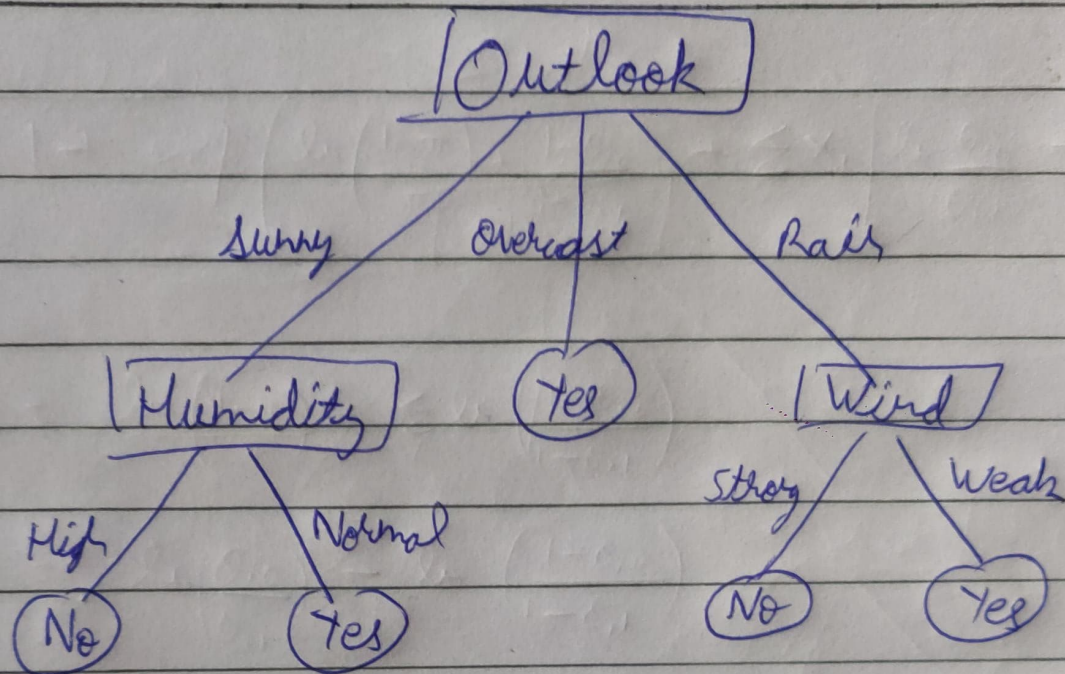 Outlook
Sunny Overcast Rain
Humidity Yes Wind
High Normal Strong Weak
No Yes No Yes